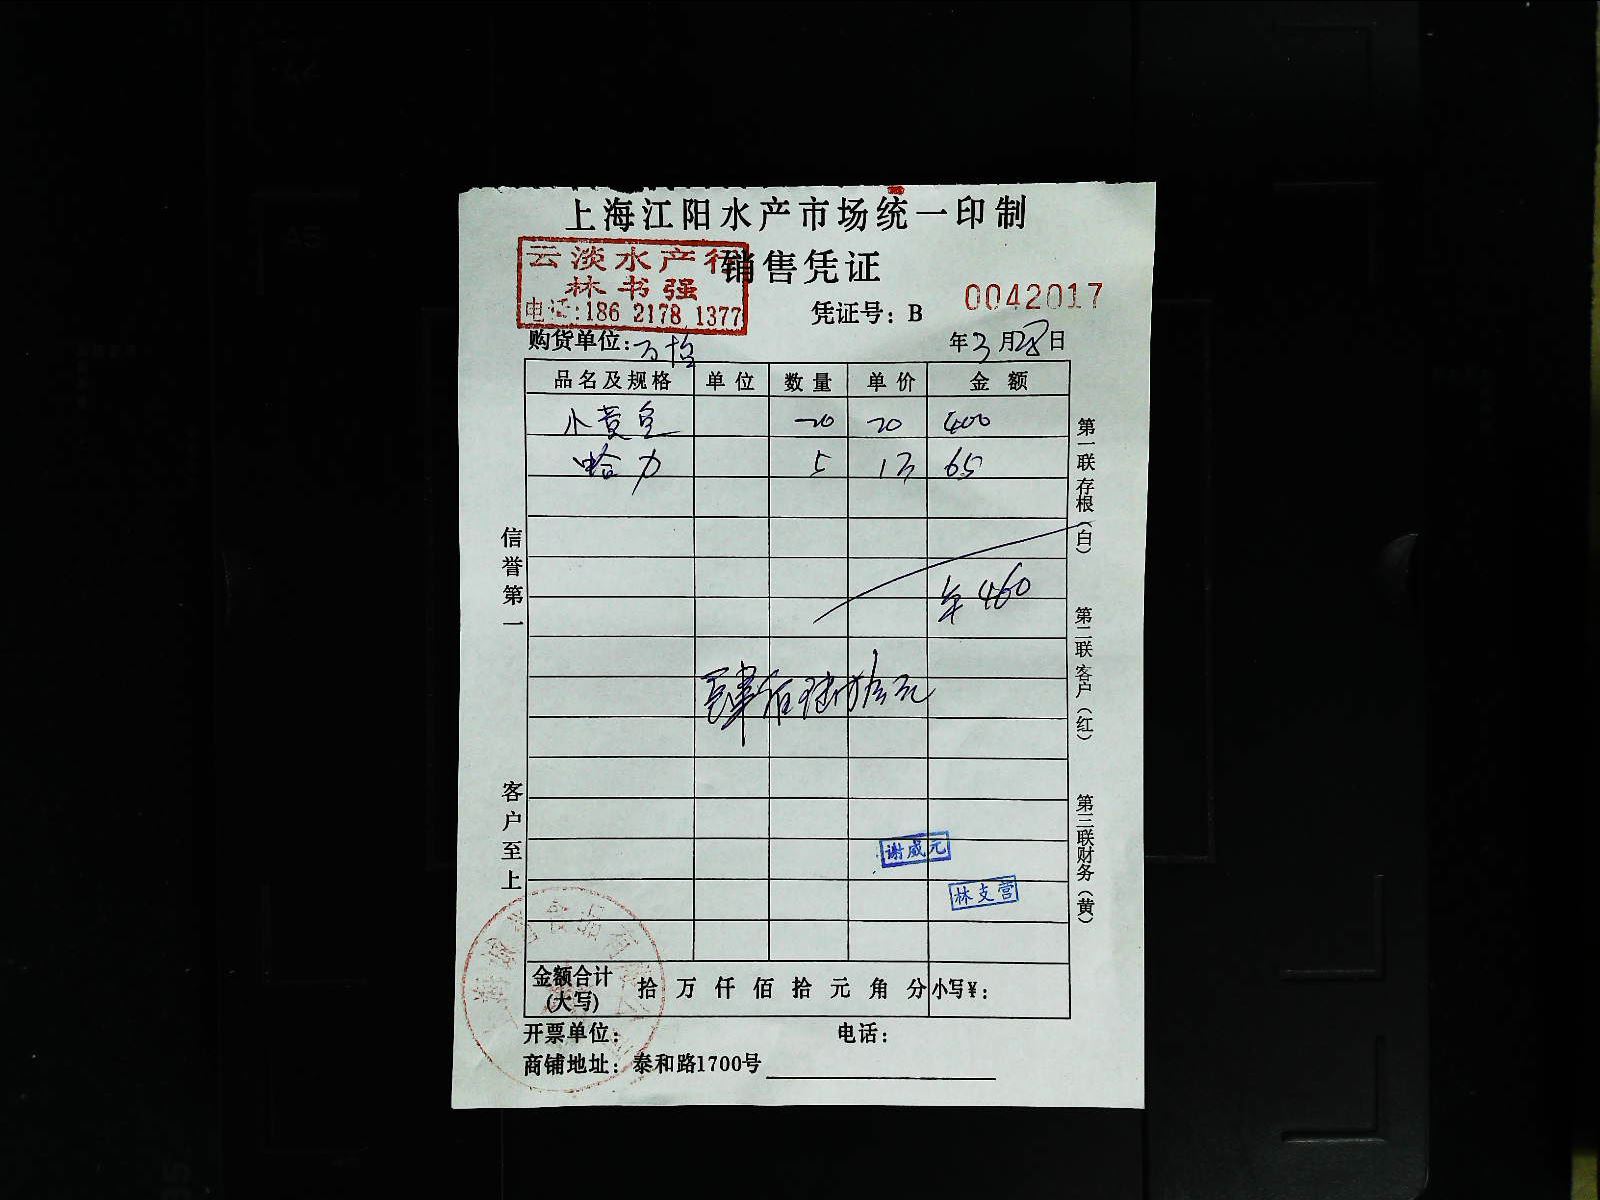 上海江阳水产市场统一印制
销售凭证
云淡水产行
林书强
电话:186 2178 1377
凭证号：B 0042017
购货单位：万怡
年3月28日
品名及规格 单位 数量 单价 金额
小黄鱼 20 20 400
哈力 5 13 65
460
肆佰陆拾元
信誉第一
客户至上
第一联存根（白）
第二联客户（红）
第三联财务（黄）
谢威元
林支营
金额合计(大写) 拾 万 仟 佰 拾 元 角 分 小写¥：
开票单位： 电话：
商铺地址：泰和路1700号